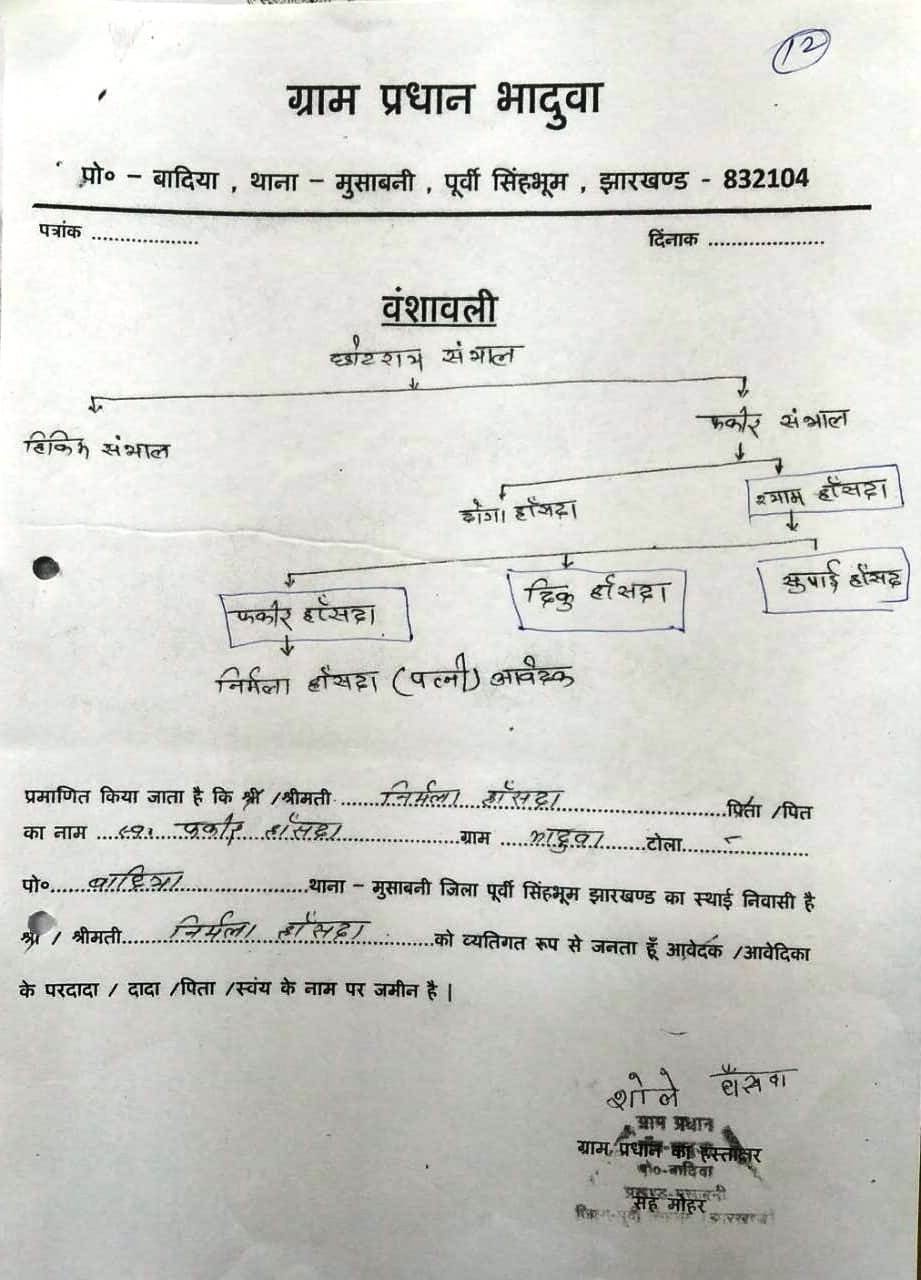 12
ग्राम प्रधान भादुवा
प्रो० – बादिया , थाना – मुसाबनी , पूर्वी सिंहभूम , झारखण्ड - 832104
पत्रांक ................... दिंनाक .....................
वंशावली
छोटराय संथाल
फकीर संथाल
हिकिम संथाल
श्याम हाँसदा
होगा हाँसदा
सुपाई हाँसदा
फकीर हाँसदा दिकु हाँसदा
निर्मला हाँसदा (पत्नी) आवेदक
प्रमाणित किया जाता है कि श्री /श्रीमती निर्मला हाँसदा प्रिता /पित
का नाम स्व० फकीर हाँसदा ग्राम भादुवा टोला -
पो० बादिया थाना – मुसाबनी जिला पूर्वी सिंहभूम झारखण्ड का स्थाई निवासी है
श्री / श्रीमती निर्मला हाँसदा को व्यतिगत रूप से जनता हूँ आवेदक /आवेदिका
के परदादा / दादा /पिता /स्वंय के नाम पर जमीन है |
शोले
ग्राम प्रधान
ग्राम प्रधान का हस्ताक्षर
पो०-बादिया
सह मोहर